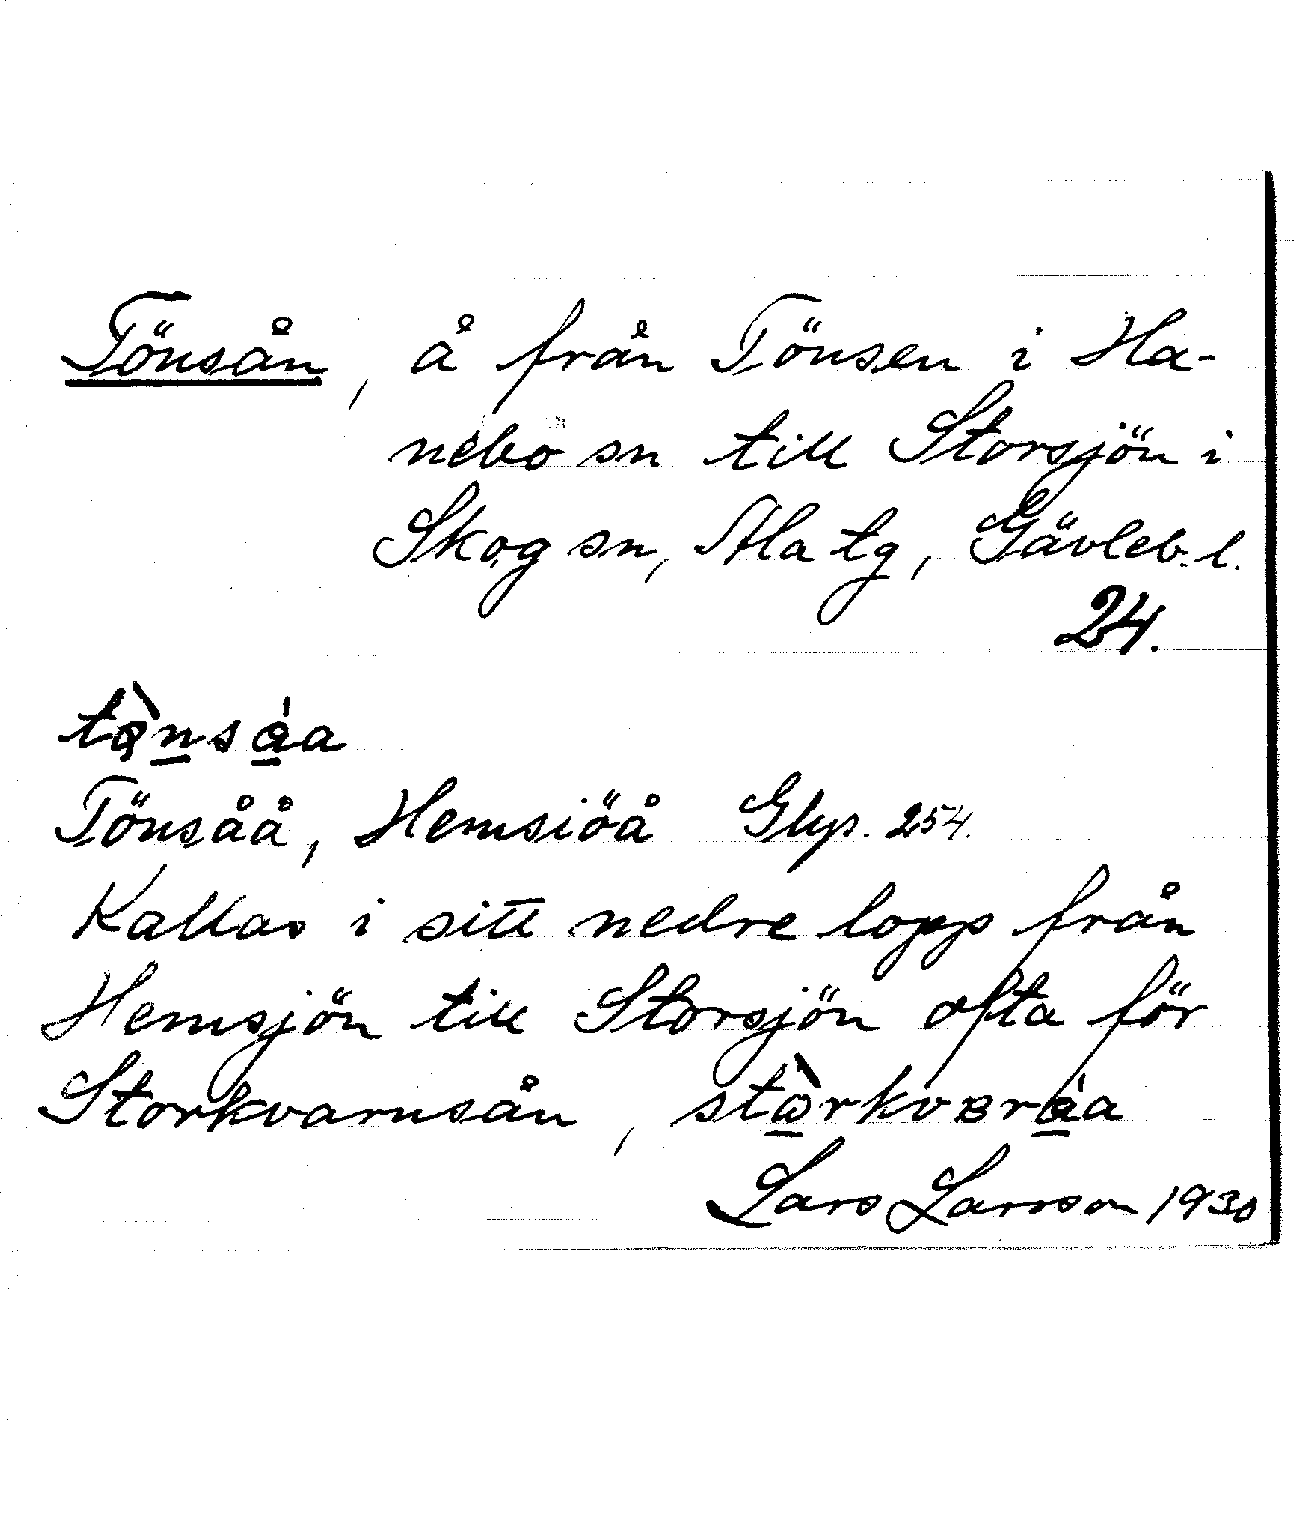 Tönsån, å från Tönsen i Ha-
nebo sn till Storsjön i
Skog sn, Ala tg, Gävleb. l.
24.
Tönsåå, Hemsiöå Glys. 254.
Kallas i sitt nedre lopp från
Hemsjön till Storsjön ofta för
Storkvarnsån,
Lars Larsson 1930